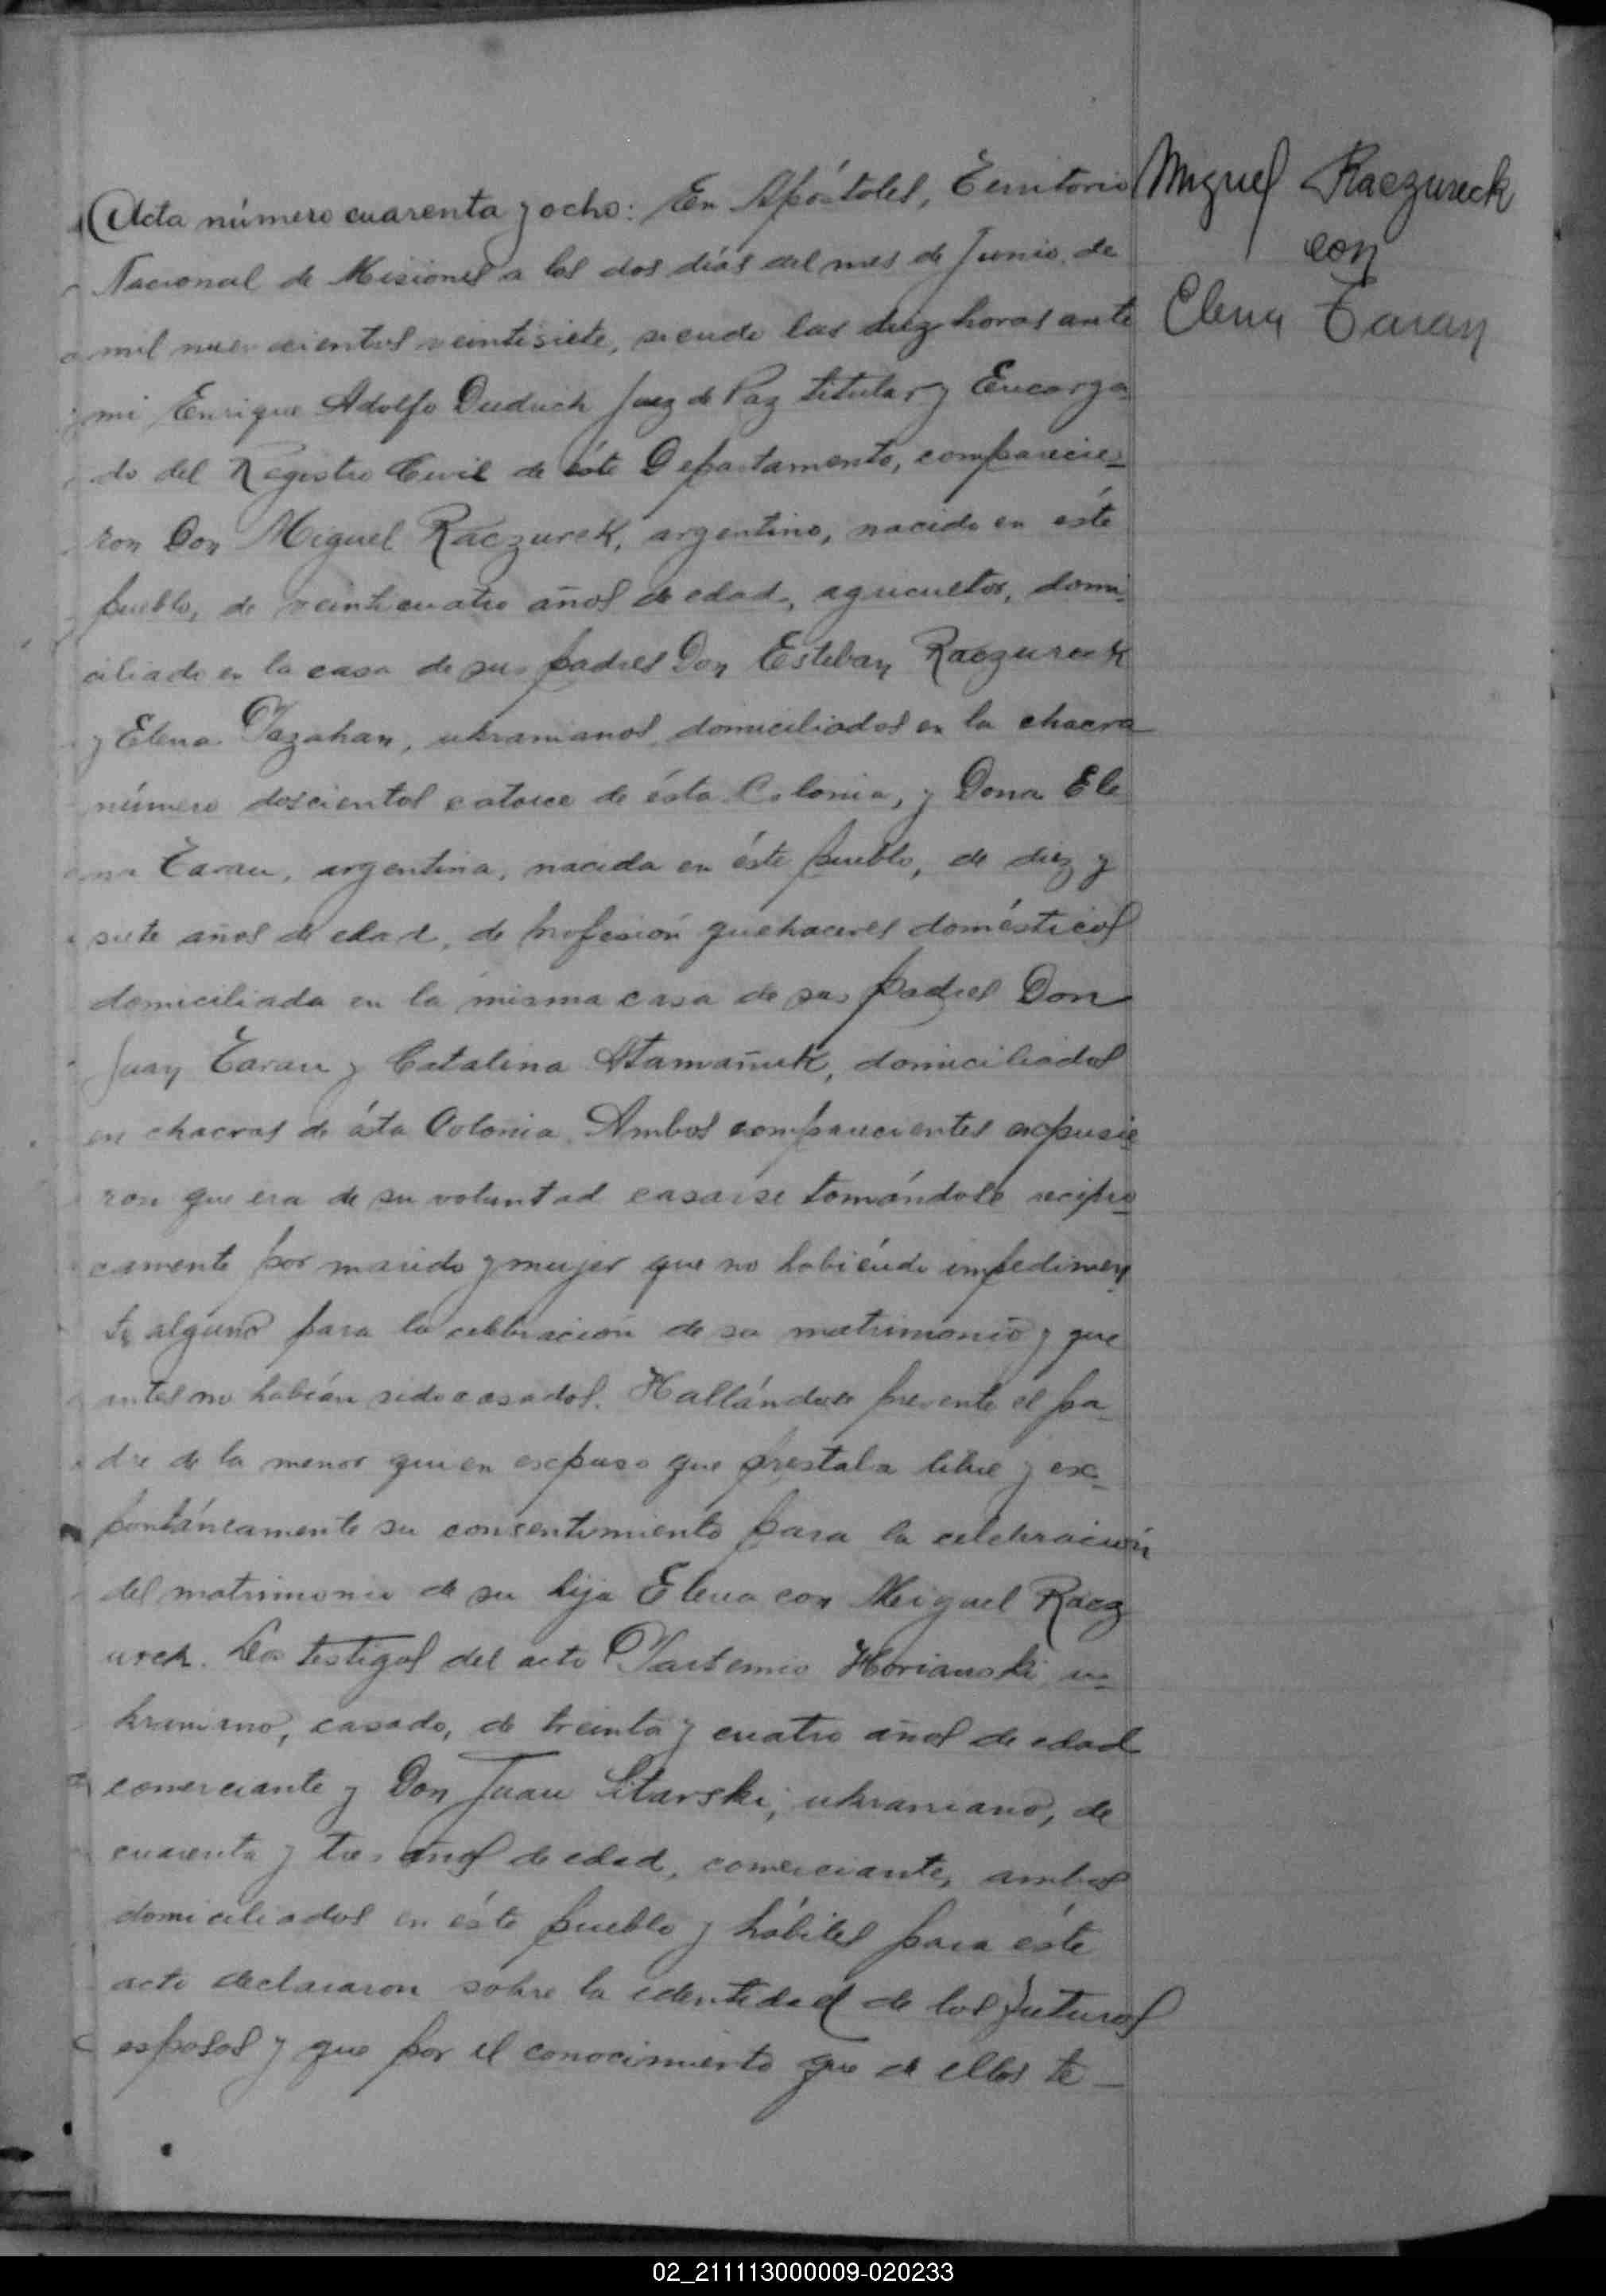 Acta número cuarenta y ocho: En Apóstoles, Territorio
Nacional de Misiones a los dos días del mes de Junio de
mil nuevecientos veintisiete, siendo las diez horas ante
mi Enrique Adolfo Duduch Juez de Paz titular y Encarga
do del Registro Civil de éste Departamento, comparecie=
ron Don Miguel Raczurek, argentino, nacido en éste
pueblo, de veinticuatro años de edad, agricultor, domi=
ciliado en la casa de sus padres Don Esteban Raczureck
y Elena Tazahan, ukranianos domiciliados en la chacra
número doscientos catorce de ésta Colonia, y Dona Ele
na Taran, argentina, nacida en éste pueblo, de diez y
siete años de edad, de profesión quehaceres domésticos
domiciliada en la misma casa de sus padres Don
Juan Taran y Catalina Atamañuk, domiciliados
en chacras de ésta Colonia. Ambos comparecientes expusie
ron que era de su voluntad casarse tomándose recipro
camente por marido y mujer que no habiéndo impedimen
to alguno para la celebración de su matrimonio y que
antes no habían sido casados. Hallándose presente el pa
dre de la menor quien expuso que prestaba libre y ex=
pontáneamente su consentimiento para la celebración
del matrimonio de su hija Elena con Miguel Racz
urek. Los testigos del acto Partemio Horianski, u=
kraniano, casado, de treinta y cuatro años de edad
comerciante y Don Juan Sitarski, ukraniano, de
cuarenta y tres años de edad, comerciante, ambos
domiciliados en éste pueblo y hábiles para éste
acto declararon sobre la identidad de los futuros
esposos y que por el conocimiento que de ellos te—
Miguel Raczureck
con
Elena Taran
02_211113000009-020233